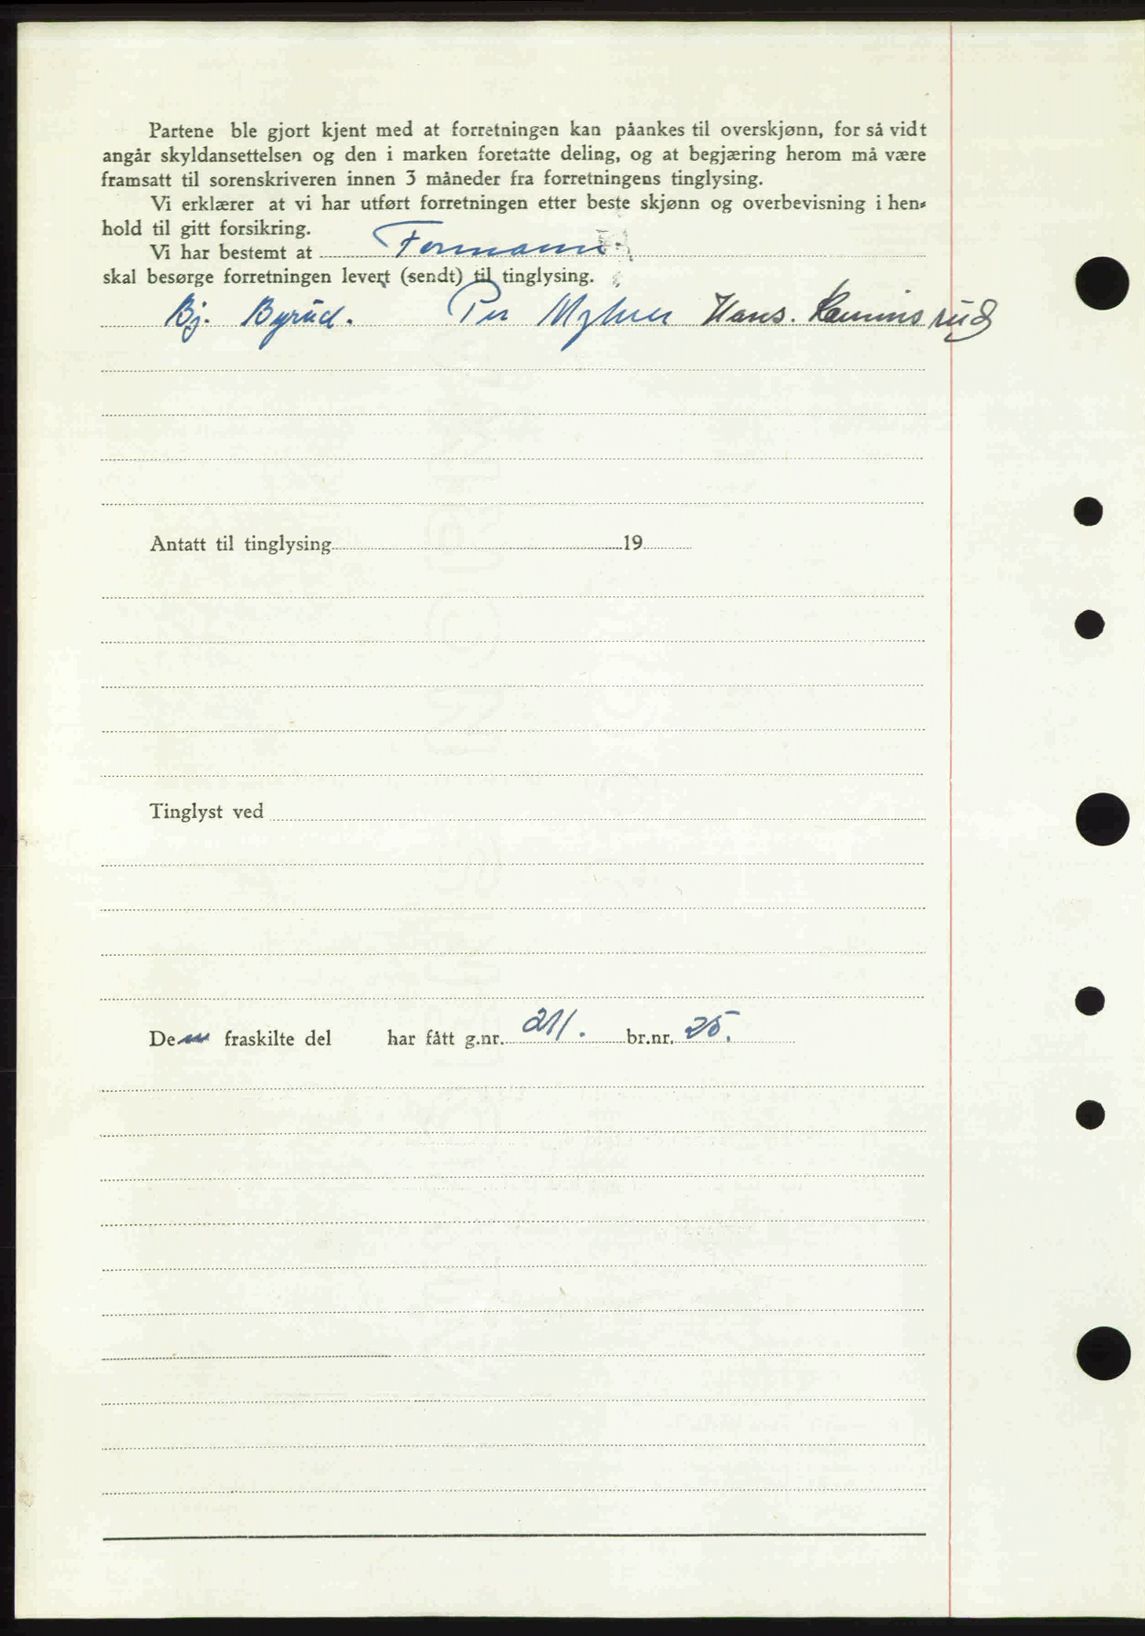 Partene ble gjort kjent med at forretningen kan påankes til overskjønn, for så vidt
angår skyldansettelsen og den i marken foretatte deling, og at begjæring herom må være
framsatt til sorenskriveren innen 3 måneder fra forretningens tinglysing.
Vi erklærer at vi har utført forretningen etter beste skjønn og overbevisning i hen-
hold til gitt forsikring.
Vi har bestemt at Formann
skal besørge forretningen levert (sendt) til tinglysing.
Bj. Byrud. Per Myhrer Hans. Ramnsrud
Antatt til tinglysing 19
Tinglyst ved
Den fraskilte del har fått g.nr. 211. br.nr. 25.